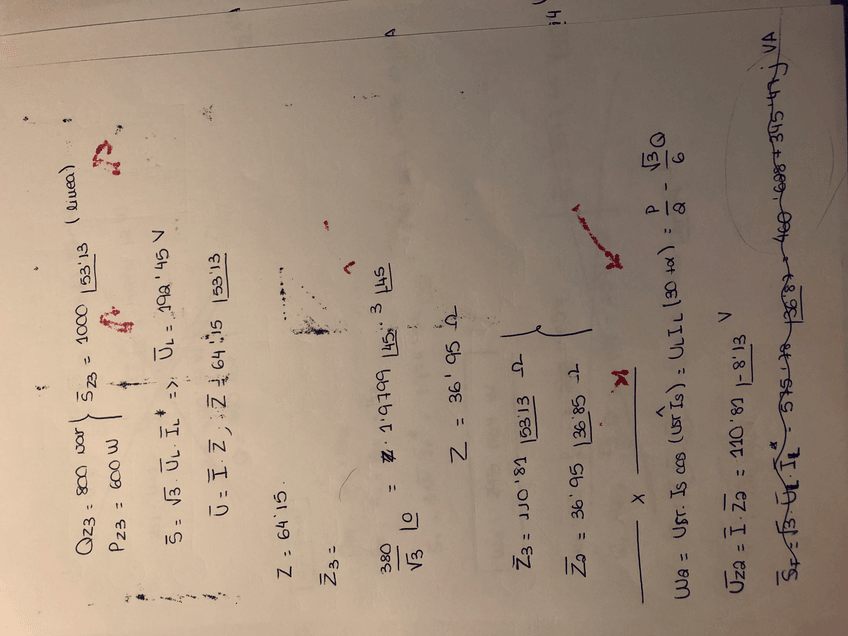 Q_Z3 = 800 var } S̅_Z3 = 1000 |53'13 (linea)
P_Z3 = 600 W
S̅ = √3 · U̅_L · I̅_L* => U̅_L = 192'45 V
U̅ = I̅ · Z̅ ; Z̅ = 64'15 |53'13
Z = 64'15.
Z̅_3 =
380/√3 |0 = Z · 1'9799 |45 · 3 |45
Z = 36'95 Ω
Z̅_3 = 110'81 |53'13 Ω }
Z̅_2 = 36'95 |36'85 Ω
x
W_2 = U_ST · I_S cos (U_ST^I_S) = U_L I_L (30 + α) = P/2 - √3Q/6
U̅_Z2 = I̅ · Z̅_2 = 110'81 |-8'13 V
S̅_T = √3 · U̅_L · I̅_L* = |36'87 = 460'628 + 345'47j VA